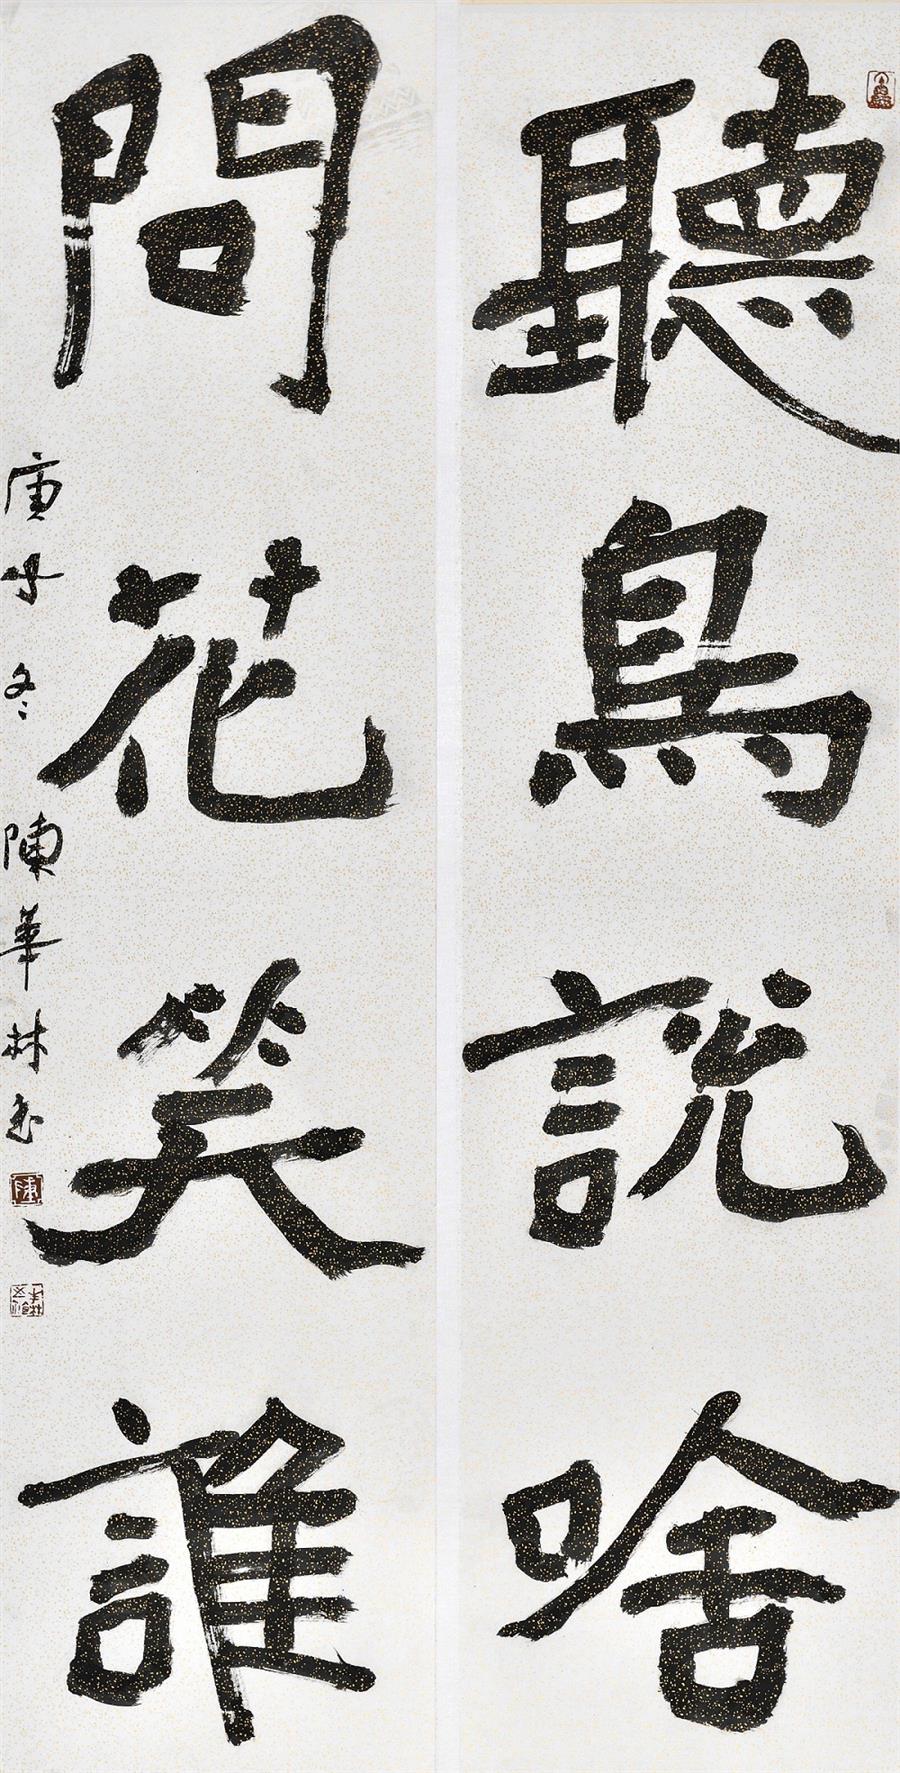 聽鳥説啥
問花笑誰
庚子冬 陳華林書